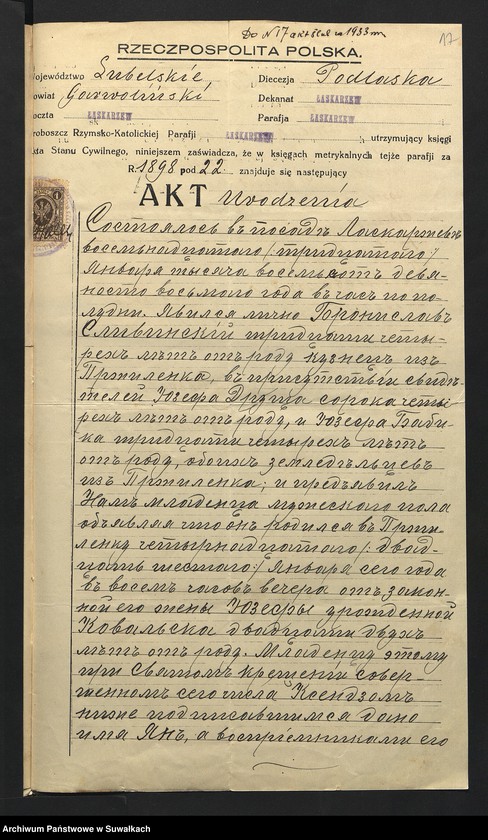 Do N 17 akt śl. z 1933 r.
17
RZECZPOSPOLITA POLSKA.
Województwo Lubelskie
Diecezja Podlaska
Powiat Garwoliński
Dekanat ŁASKARZEW
Poczta ŁASKARZEW
Parafja ŁASKARZEW
Proboszcz Rzymsko-Katolickiej Parafji ŁASKARZEW utrzymujący księgi
Akta Stanu Cywilnego, niniejszem zaświadcza, że w księgach metrykalnych tejże parafji za
R. 1898 pod 22 znajduje się następujący
AKT Urodzenia
Состоялось въ посадѣ Ласкаржевъ
восемьнадцатаго /тридцатаго/
Января тысяча восемьсотъ девя-
носто восьмаго года въ часъ по по-
лудни. Явился лично Брониславъ
Сливинскій тридцати четы-
рехъ лѣтъ отъ роду кузнецъ изъ
Пржиленка, въ присутствіи свидѣ-
телей Юзефа Друта сорока четы
рехъ лѣтъ отъ роду, и Юзефа Бади-
ка тридцати четырехъ лѣтъ
отъ роду, обоихъ земледѣльцевъ
изъ Пржиленка; и предъявилъ
Намъ младенца мужескаго пола
объявляя что онъ родился въ Пржи-
ленку четырнадцатаго /: двад-
цать шестаго:/ Января сего года
въ восемь часовъ вечера отъ закон-
ной его жены Юзефы урожденной
Ковальска двадцати двухъ
лѣтъ отъ роду. Младенцу этому
при Святомъ крещеніи совер-
шенномъ сего числа Ксендзомъ
ниже подписавшимся дано
имя Янъ, а воспріемниками его
Archiwum Państwowe w Suwałkach